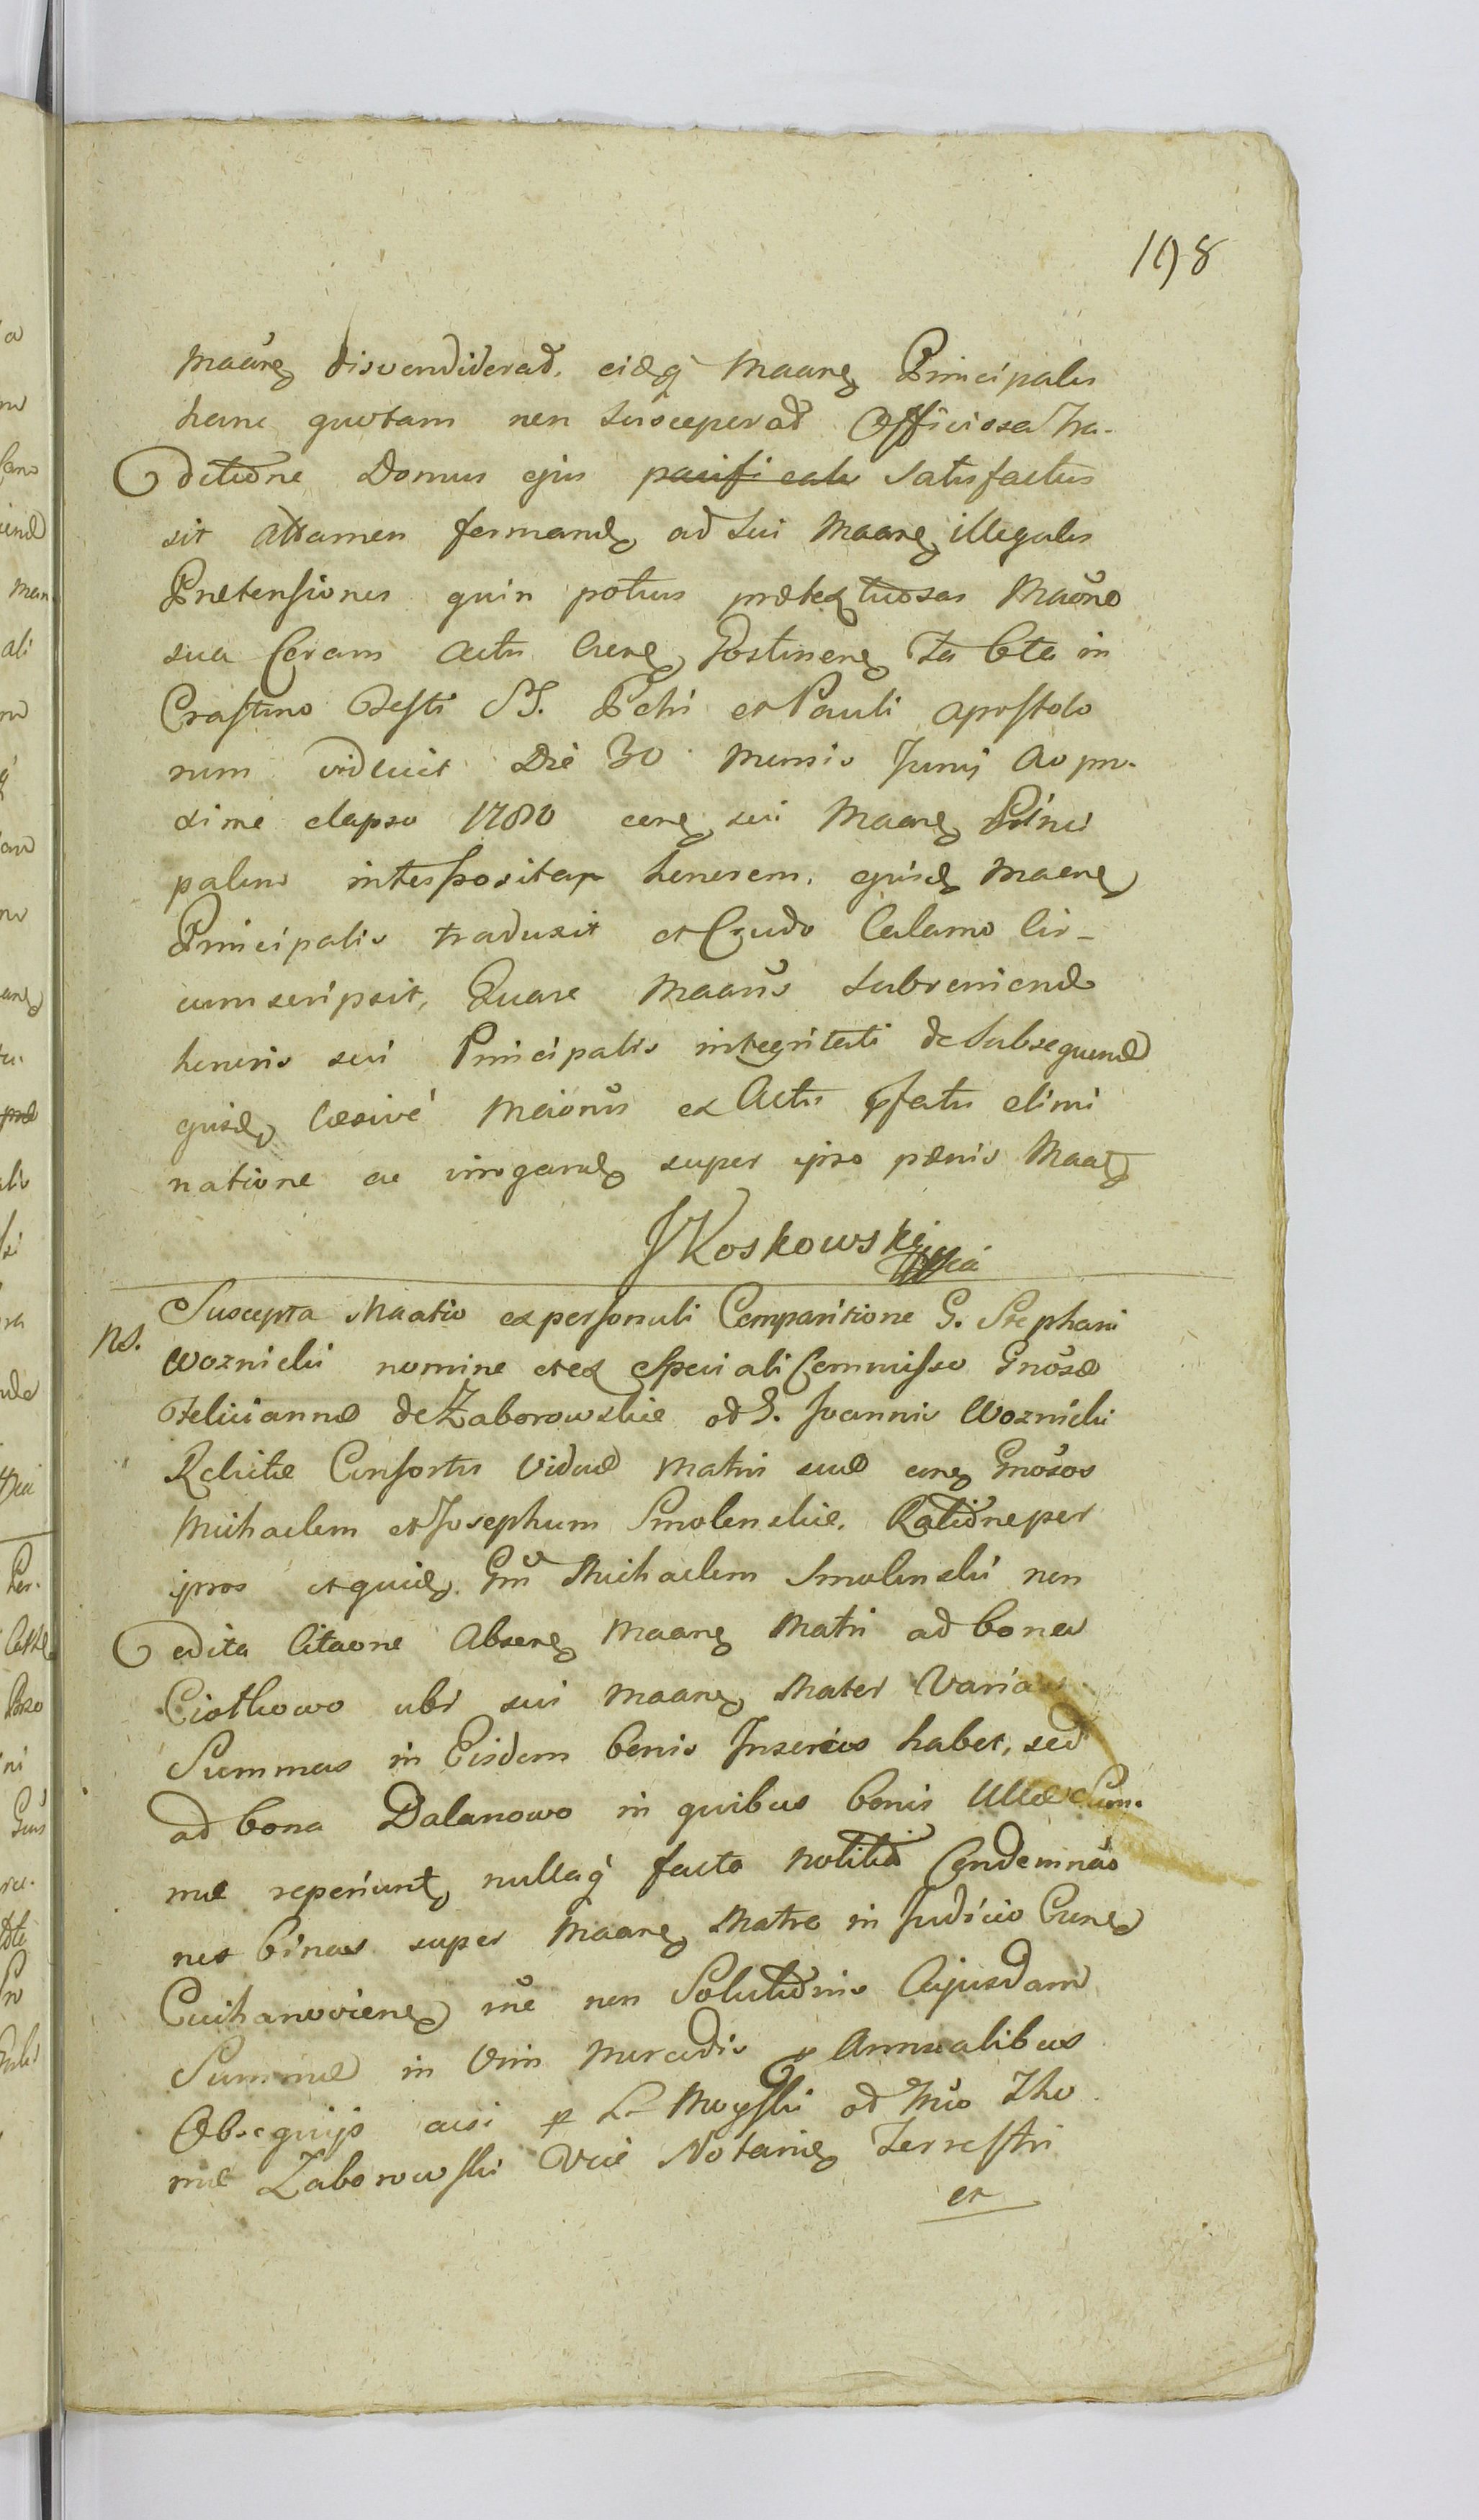 198
Maare disvendiderad. eidq Maare Principalis
hanc quotam non susceperad Officiosa Tra-
ditione Domus ejus pacificatus satisfactus
sit Attamen fermand ad sui Maare illegales
Prætensiones quin potius prætextuosas Maone
sua Coram Actis
Crastino Festi SS. Petri et Pauli Apostolo
rum videlicet Die 30 Mensis Junij Ao pro-
xime elapso 1780 sui Maare Princi
palem interpositam honorem. Maare
Principalis traduxit et Crudo Calamo Cir-
cumscripsit, Quare Maans subveniend
honoris sui Principalis integritati de subsequend
læsivé Maonis ex Actis pfatis elimi
natione ac irrogand super ipso pænis Maat
J Koskowski mpia
ns.
Suscepta Maatio ex personali Comparitione G. Stephani
Woznicki nomine et ex speciali Commisso Gnosæ
Feliciannæ de Zaborowskie od G. Joannis Woznicki
Relictæ Consortis Viduæ Matris suæ Gnosos
Michaelem et Josephum Smolenskie. Ratione per
ipsos et quid Gm Michaelem Smolenski non
edita Citaone Absen Maare Matri ad bona
Ciołkowo ubi sui Maare Mater Varias
Summas in Eisdem bonis Inserius habet, sed
ad bona Dalanowo in quibus bonis Ullæ Sum-
mæ reperiunt, nullaq facta notitia Condemnao
nes binas super Maare Matre in Judicio
Ciechanovien rne non Solutionis Cujusdam
Summæ in Vim Mercedis p Annualibus
Obsequijs p L Moyski od Mo Tho
mæ Zaborowski Vice Notarie Terrestri
et